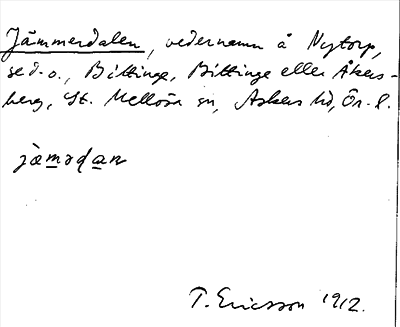 Jämmerdalen, vedernamn å Nytorp,
se d. o., Bittinge, Bittinge eller Åkers-
berg, St. Mellösa sn, Askers hd, Ör. l.
jämədan
T. Ericsson 1912.